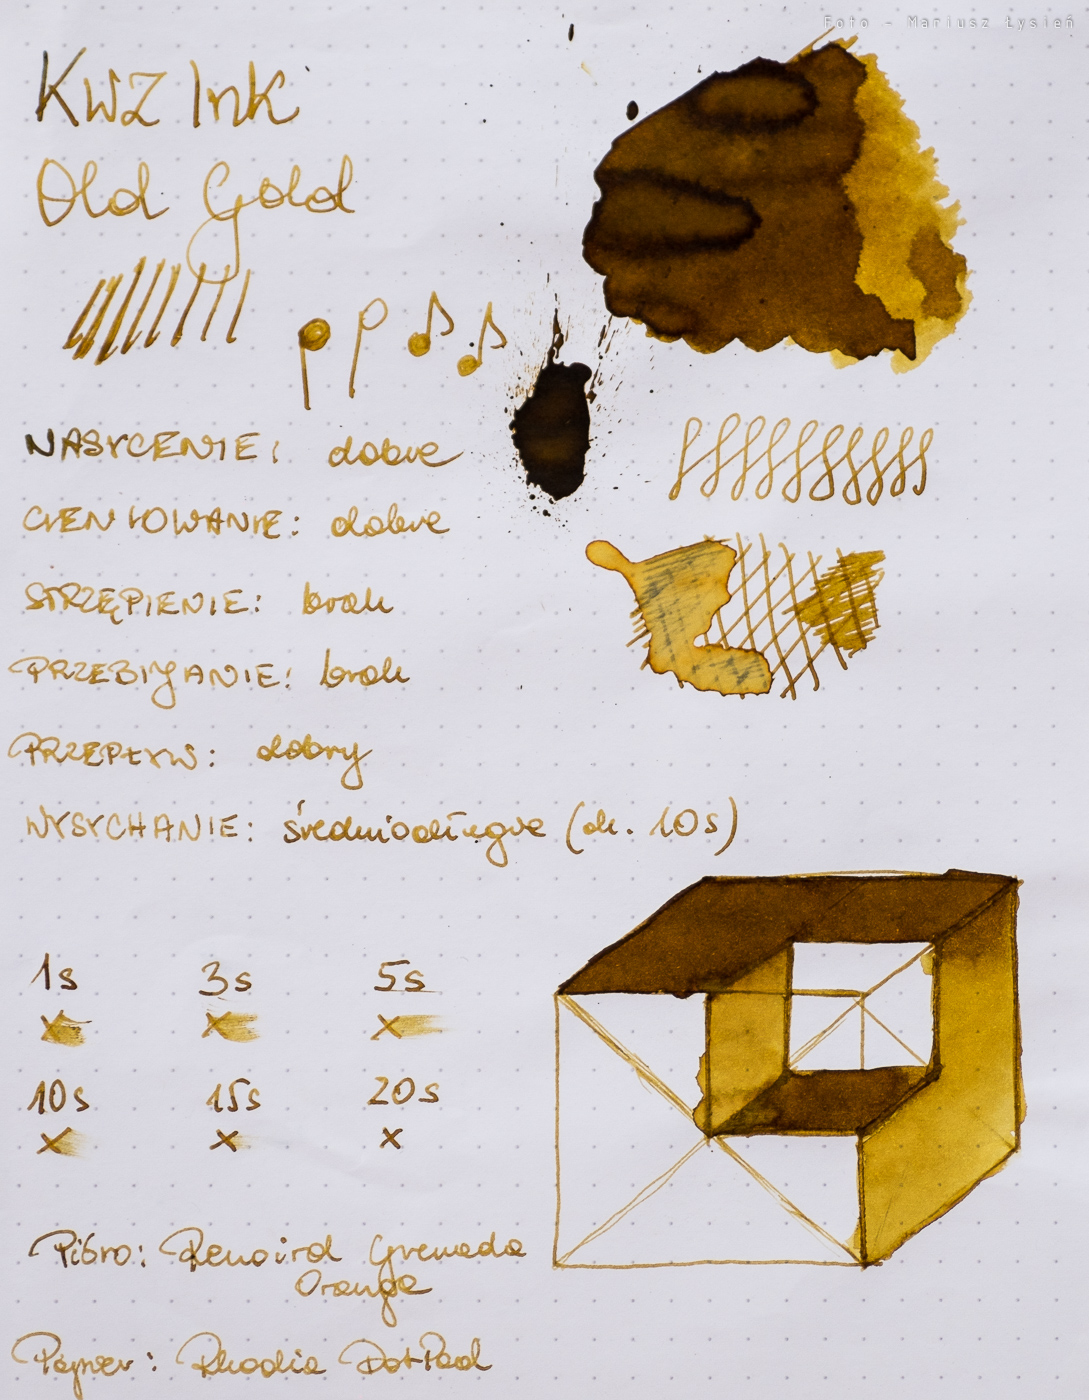 Foto - Mariusz Łysień
KWZ Ink
Old Gold
NASYCENIE: dobre
CIENIOWANIE: dobre
STRZĘPIENIE: brak
PRZEBIJANIE: brak
PRZEPŁYW: dobry
WYSYCHANIE: średniodługie (ok. 10s)
1s 3s 5s
x x x
10s 15s 20s
x x x
Pióro: Renoird Grenada
Orange
Papier: Rhodia DotPad